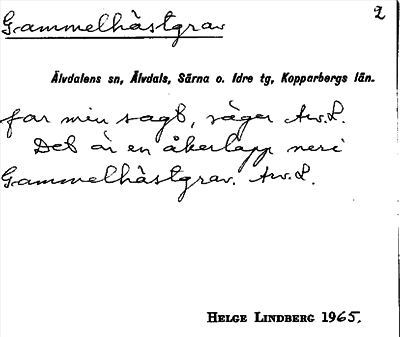 Gammelhästgrav
2
Älvdalens sn, Älvdals, Särna o. Idre tg, Kopparbergs län.
far min sagt, säger Aw.L.
Det är en åkerlapp neri
Gammelhästgrav. Aw.L.
HELGE LINDBERG 1965.